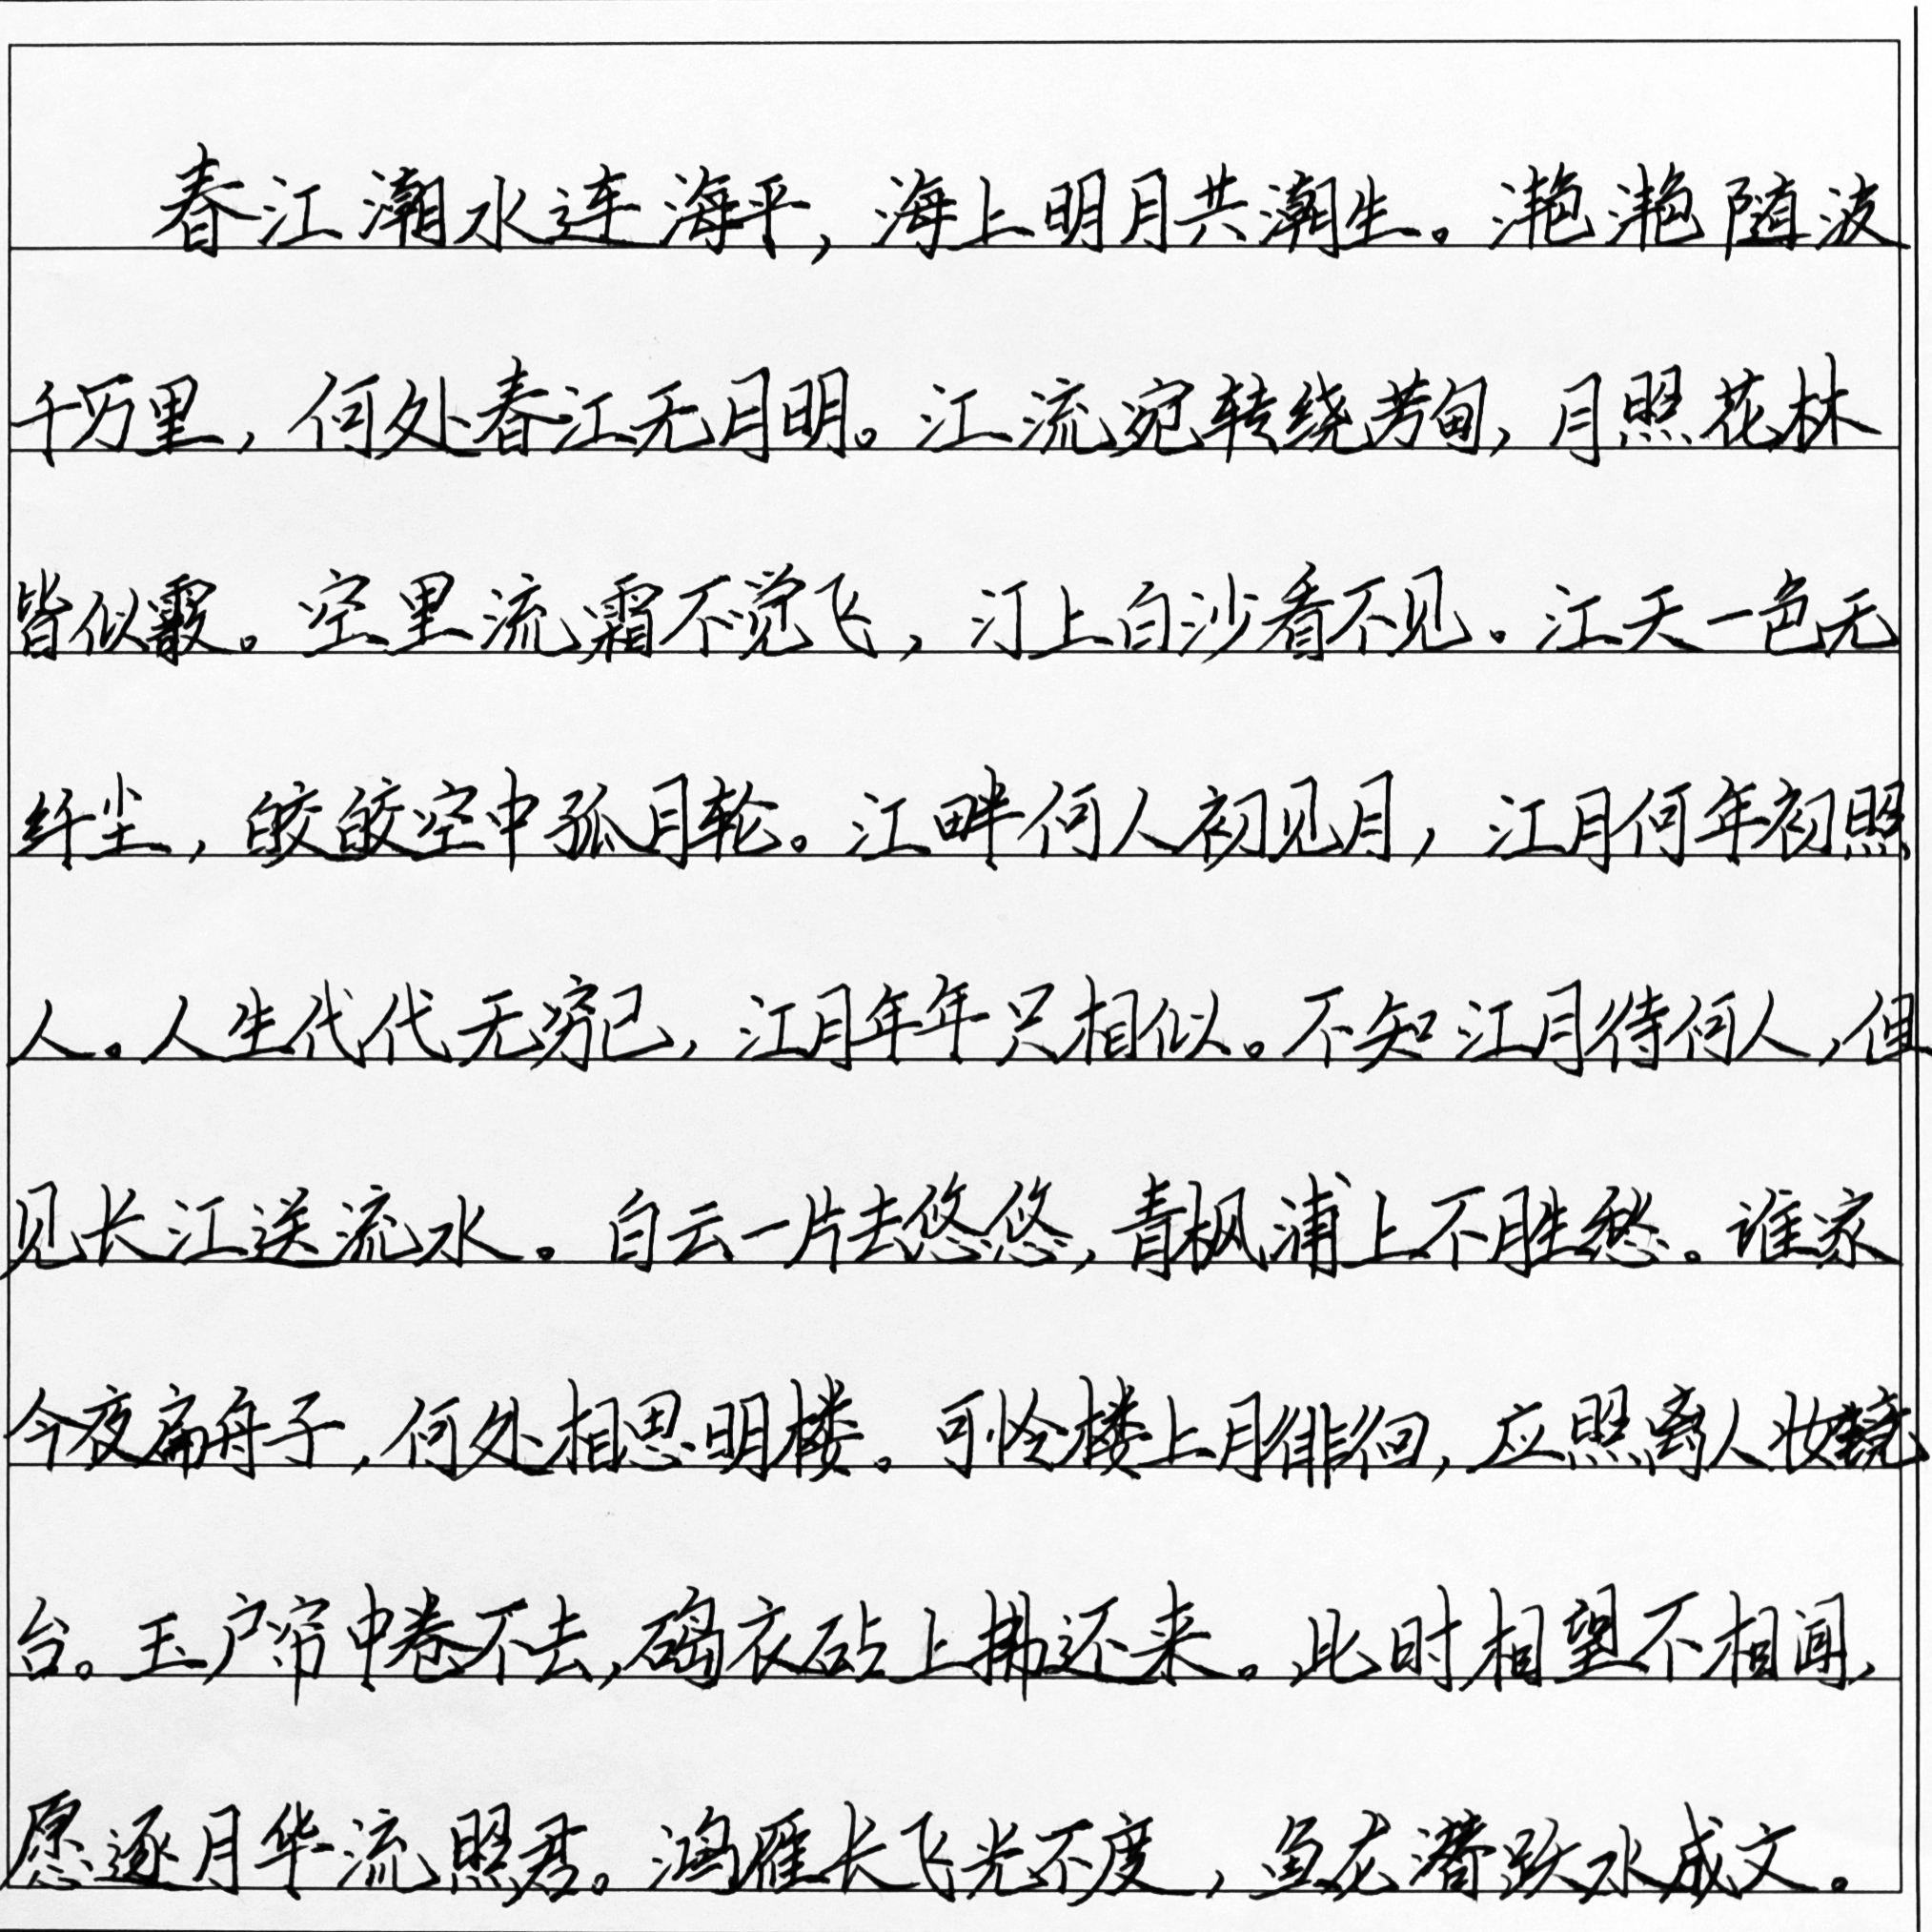 春江潮水连海平，海上明月共潮生。滟滟随波
千万里，何处春江无月明。江流宛转绕芳甸，月照花林
皆似霰。空里流霜不觉飞，汀上白沙看不见。江天一色无
纤尘，皎皎空中孤月轮。江畔何人初见月，江月何年初照
人。人生代代无穷已，江月年年只相似。不知江月待何人，但
见长江送流水。白云一片去悠悠，青枫浦上不胜愁。谁家
今夜扁舟子，何处相思明楼。可怜楼上月徘徊，应照离人妆镜
台。玉户帘中卷不去，捣衣砧上拂还来。此时相望不相闻，
愿逐月华流照君。鸿雁长飞光不度，鱼龙潜跃水成文。